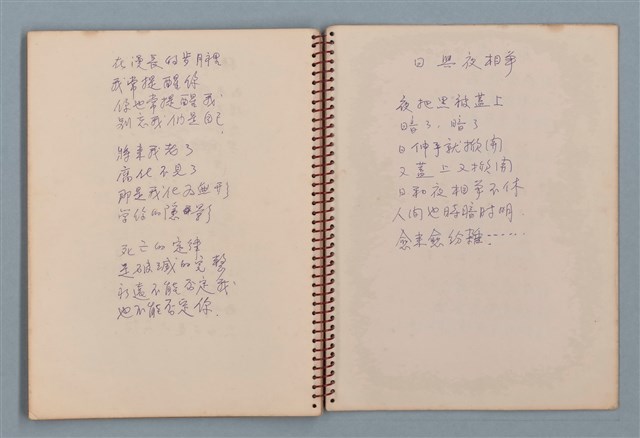 在漫長的歲月裡
我常提醒你
你也常提醒我
別忘我仍是自己
將來我老了
腐化不見了
那是我化為無形
學你的隱影
死亡的定律
是破滅的完整
永遠不能否定我
也不能否定你.
日與夜相爭
夜把黑被蓋上
暗了、暗了
日伸手就掀開
又蓋上又掀開
日和夜相爭不休
人间也時暗时明
愈来愈纷雜……